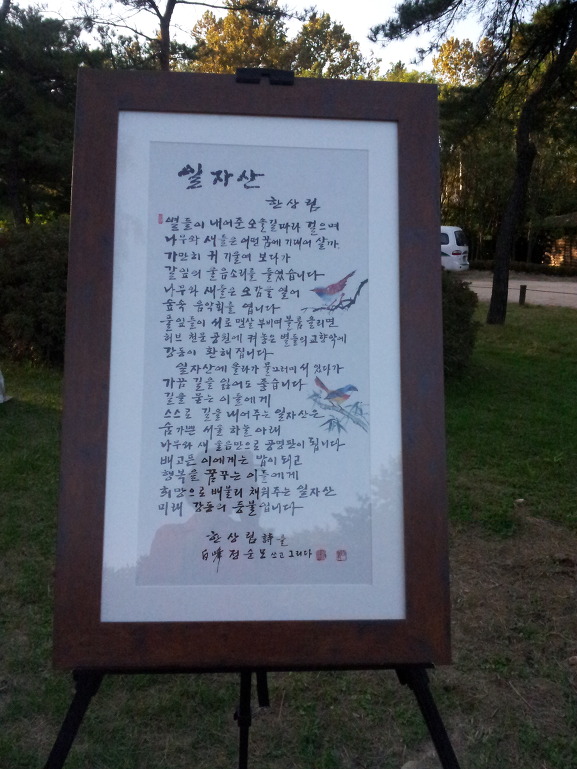 일자산
한상림
별들이 내어준 오솔길 따라 걸으며
나무와 새들은 어떤 꿈에 기대어 살까
가만히 귀 기울여 보다가
갈잎의 울음소리를 들었습니다
나무와 새들은 오감을 열어
숲속 음악회를 엽니다
풀잎들이 서로 맨살 부비며 볼륨 올리면
허브 천문 공원에 켜놓은 별들의 교향악에
강동이 환해집니다
일자산에 올라가 물끄러미 서 있다가
가끔 길을 잃어도 좋습니다
길을 묻는 이들에게
스스로 길을 내어주는 일자산은
숨가쁜 서울 하늘 아래
나무와 새 울음만으로 공명판이 됩니다
배고픈 이에게는 밥이 되고
행복을 꿈꾸는 이들에게
희망으로 배불리 채워주는 일자산
미래 강동의 등불입니다
한상림 詩를
白峰 전순모 쓰고 그리다